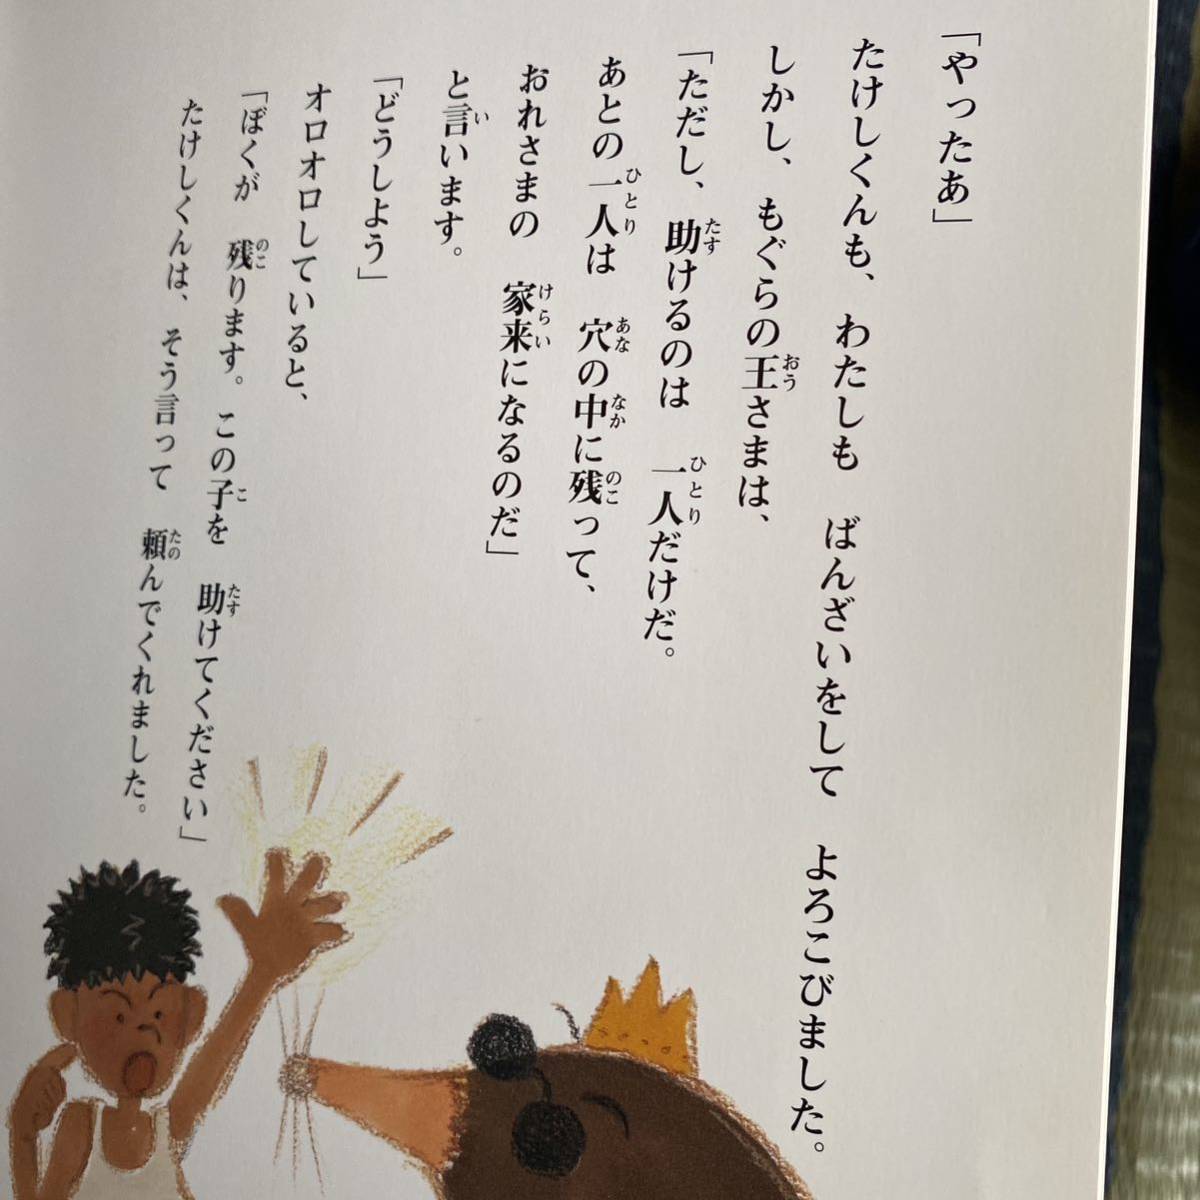 「やったあ」
たけしくんも、わたしも　ばんざいをして　よろこびました。
しかし、もぐらの王さまは、
「ただし、助けるのは　一人だけだ。
あとの一人は　穴の中に残って、
おれさまの　家来になるのだ」
と言います。
「どうしよう」
オロオロしていると、
「ぼくが　残ります。この子を　助けてください」
たけしくんは、そう言って　頼んでくれました。